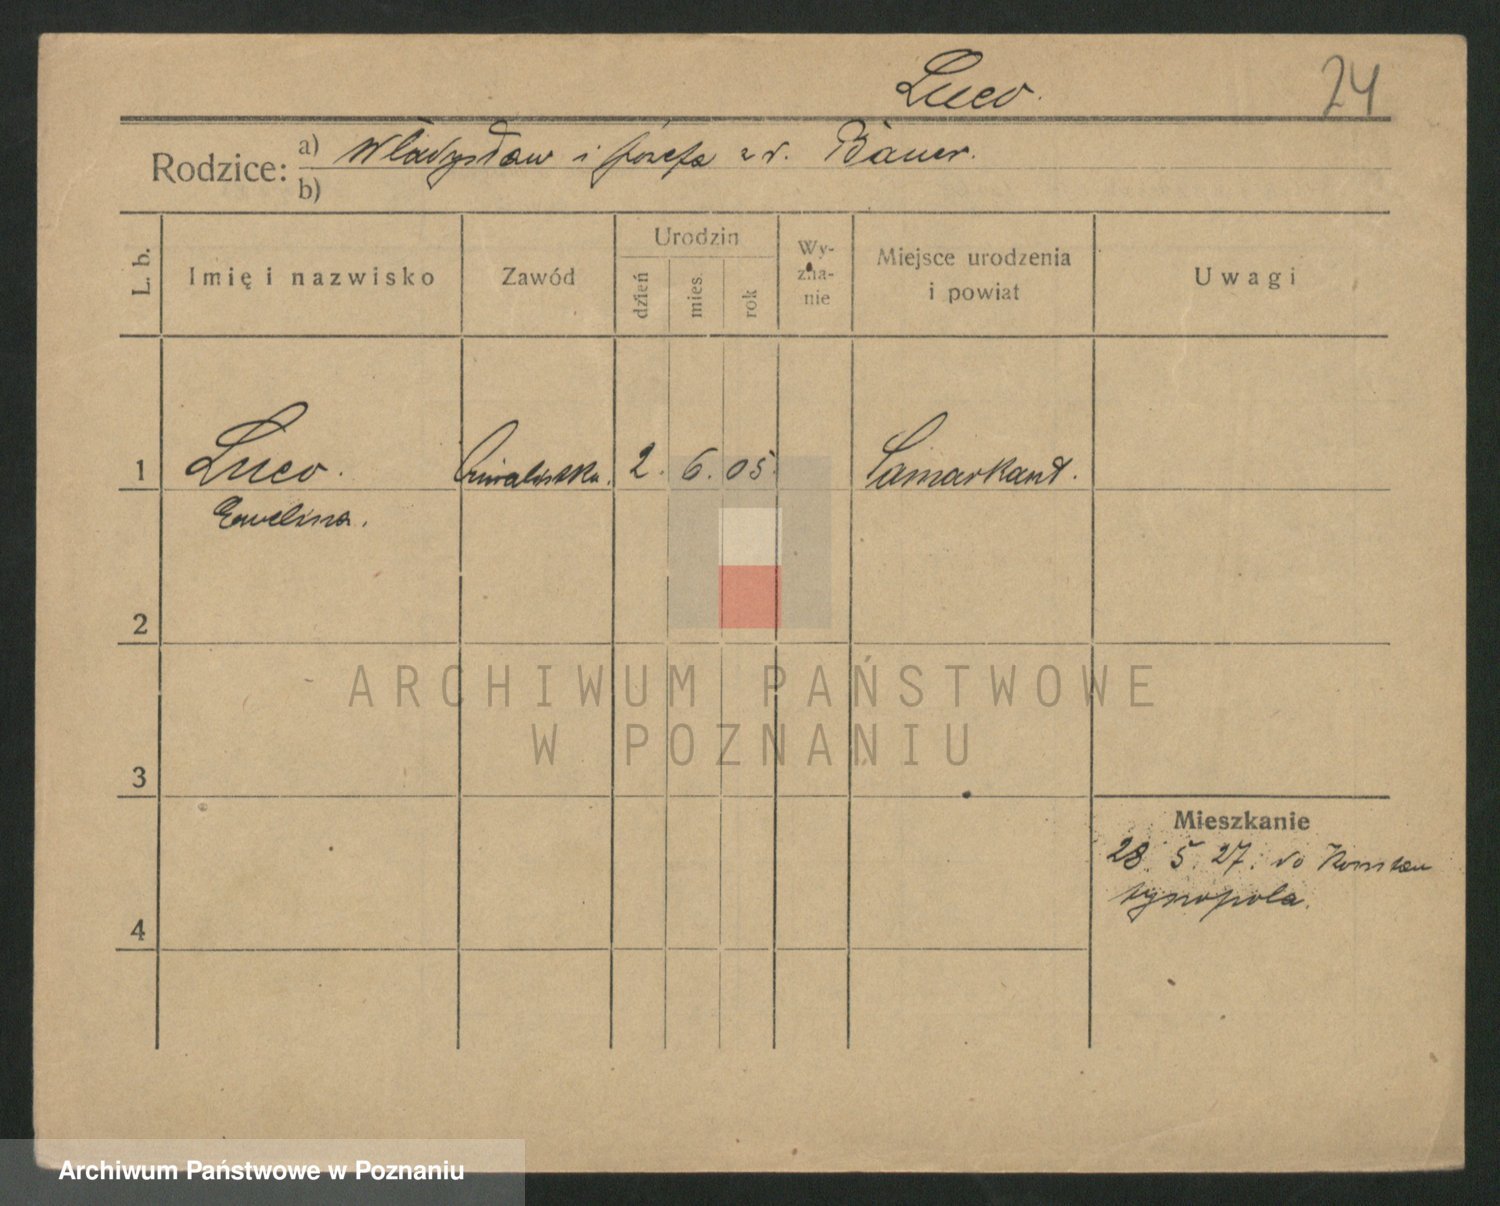 Luco.
24
Rodzice: a) Władysław i Józefa z d. Bauer.
b)
L. b.
Imię i nazwisko
Zawód
Urodzin
dzień
mies.
rok
Wy-
zna-
nie
Miejsce urodzenia
i powiat
Uwagi
1 Luco. 2. 6. 05. Samarkant.
Ewelina.
2
3
4
Mieszkanie
28. 5. 27. do Konstan
tynopola.
ARCHIWUM PAŃSTWOWE
W POZNANIU
Archiwum Państwowe w Poznaniu